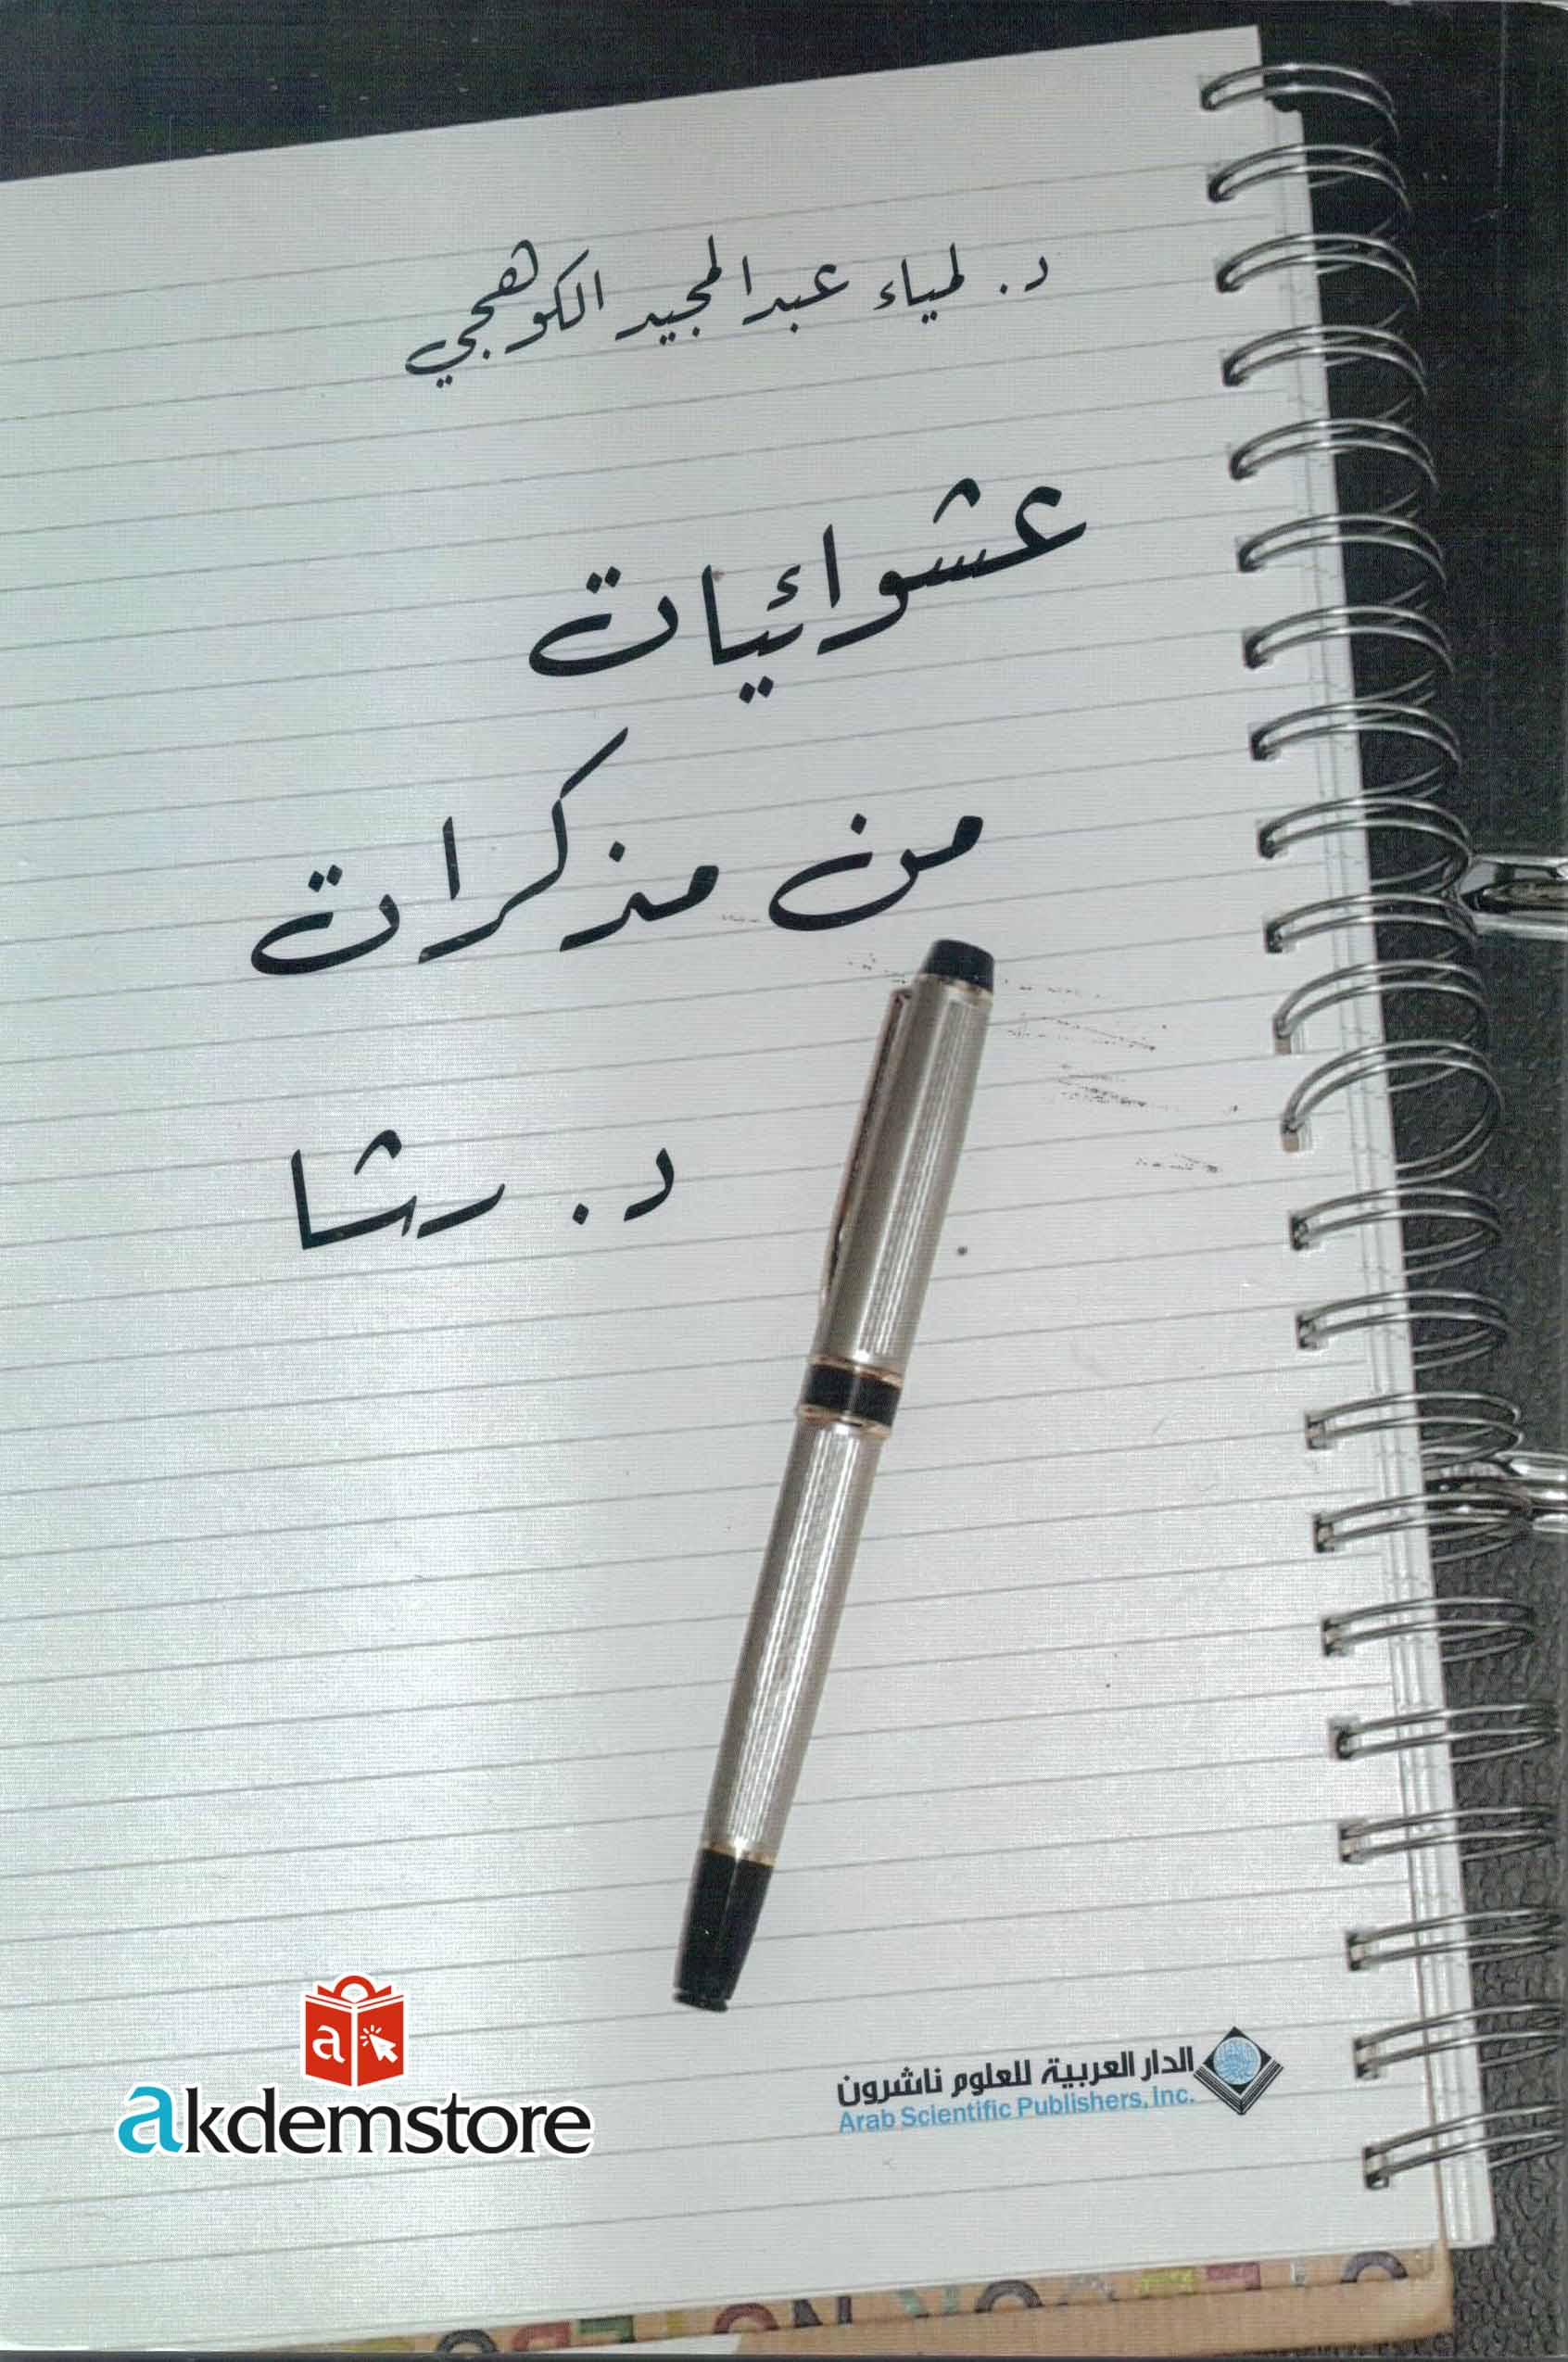 د. لمياء عبدالمجيد الكوهجي
عشوائيات
من مذكرات
د. رشا
a
akdemstore
الدار العربية للعلوم ناشرون
Arab Scientific Publishers, Inc.